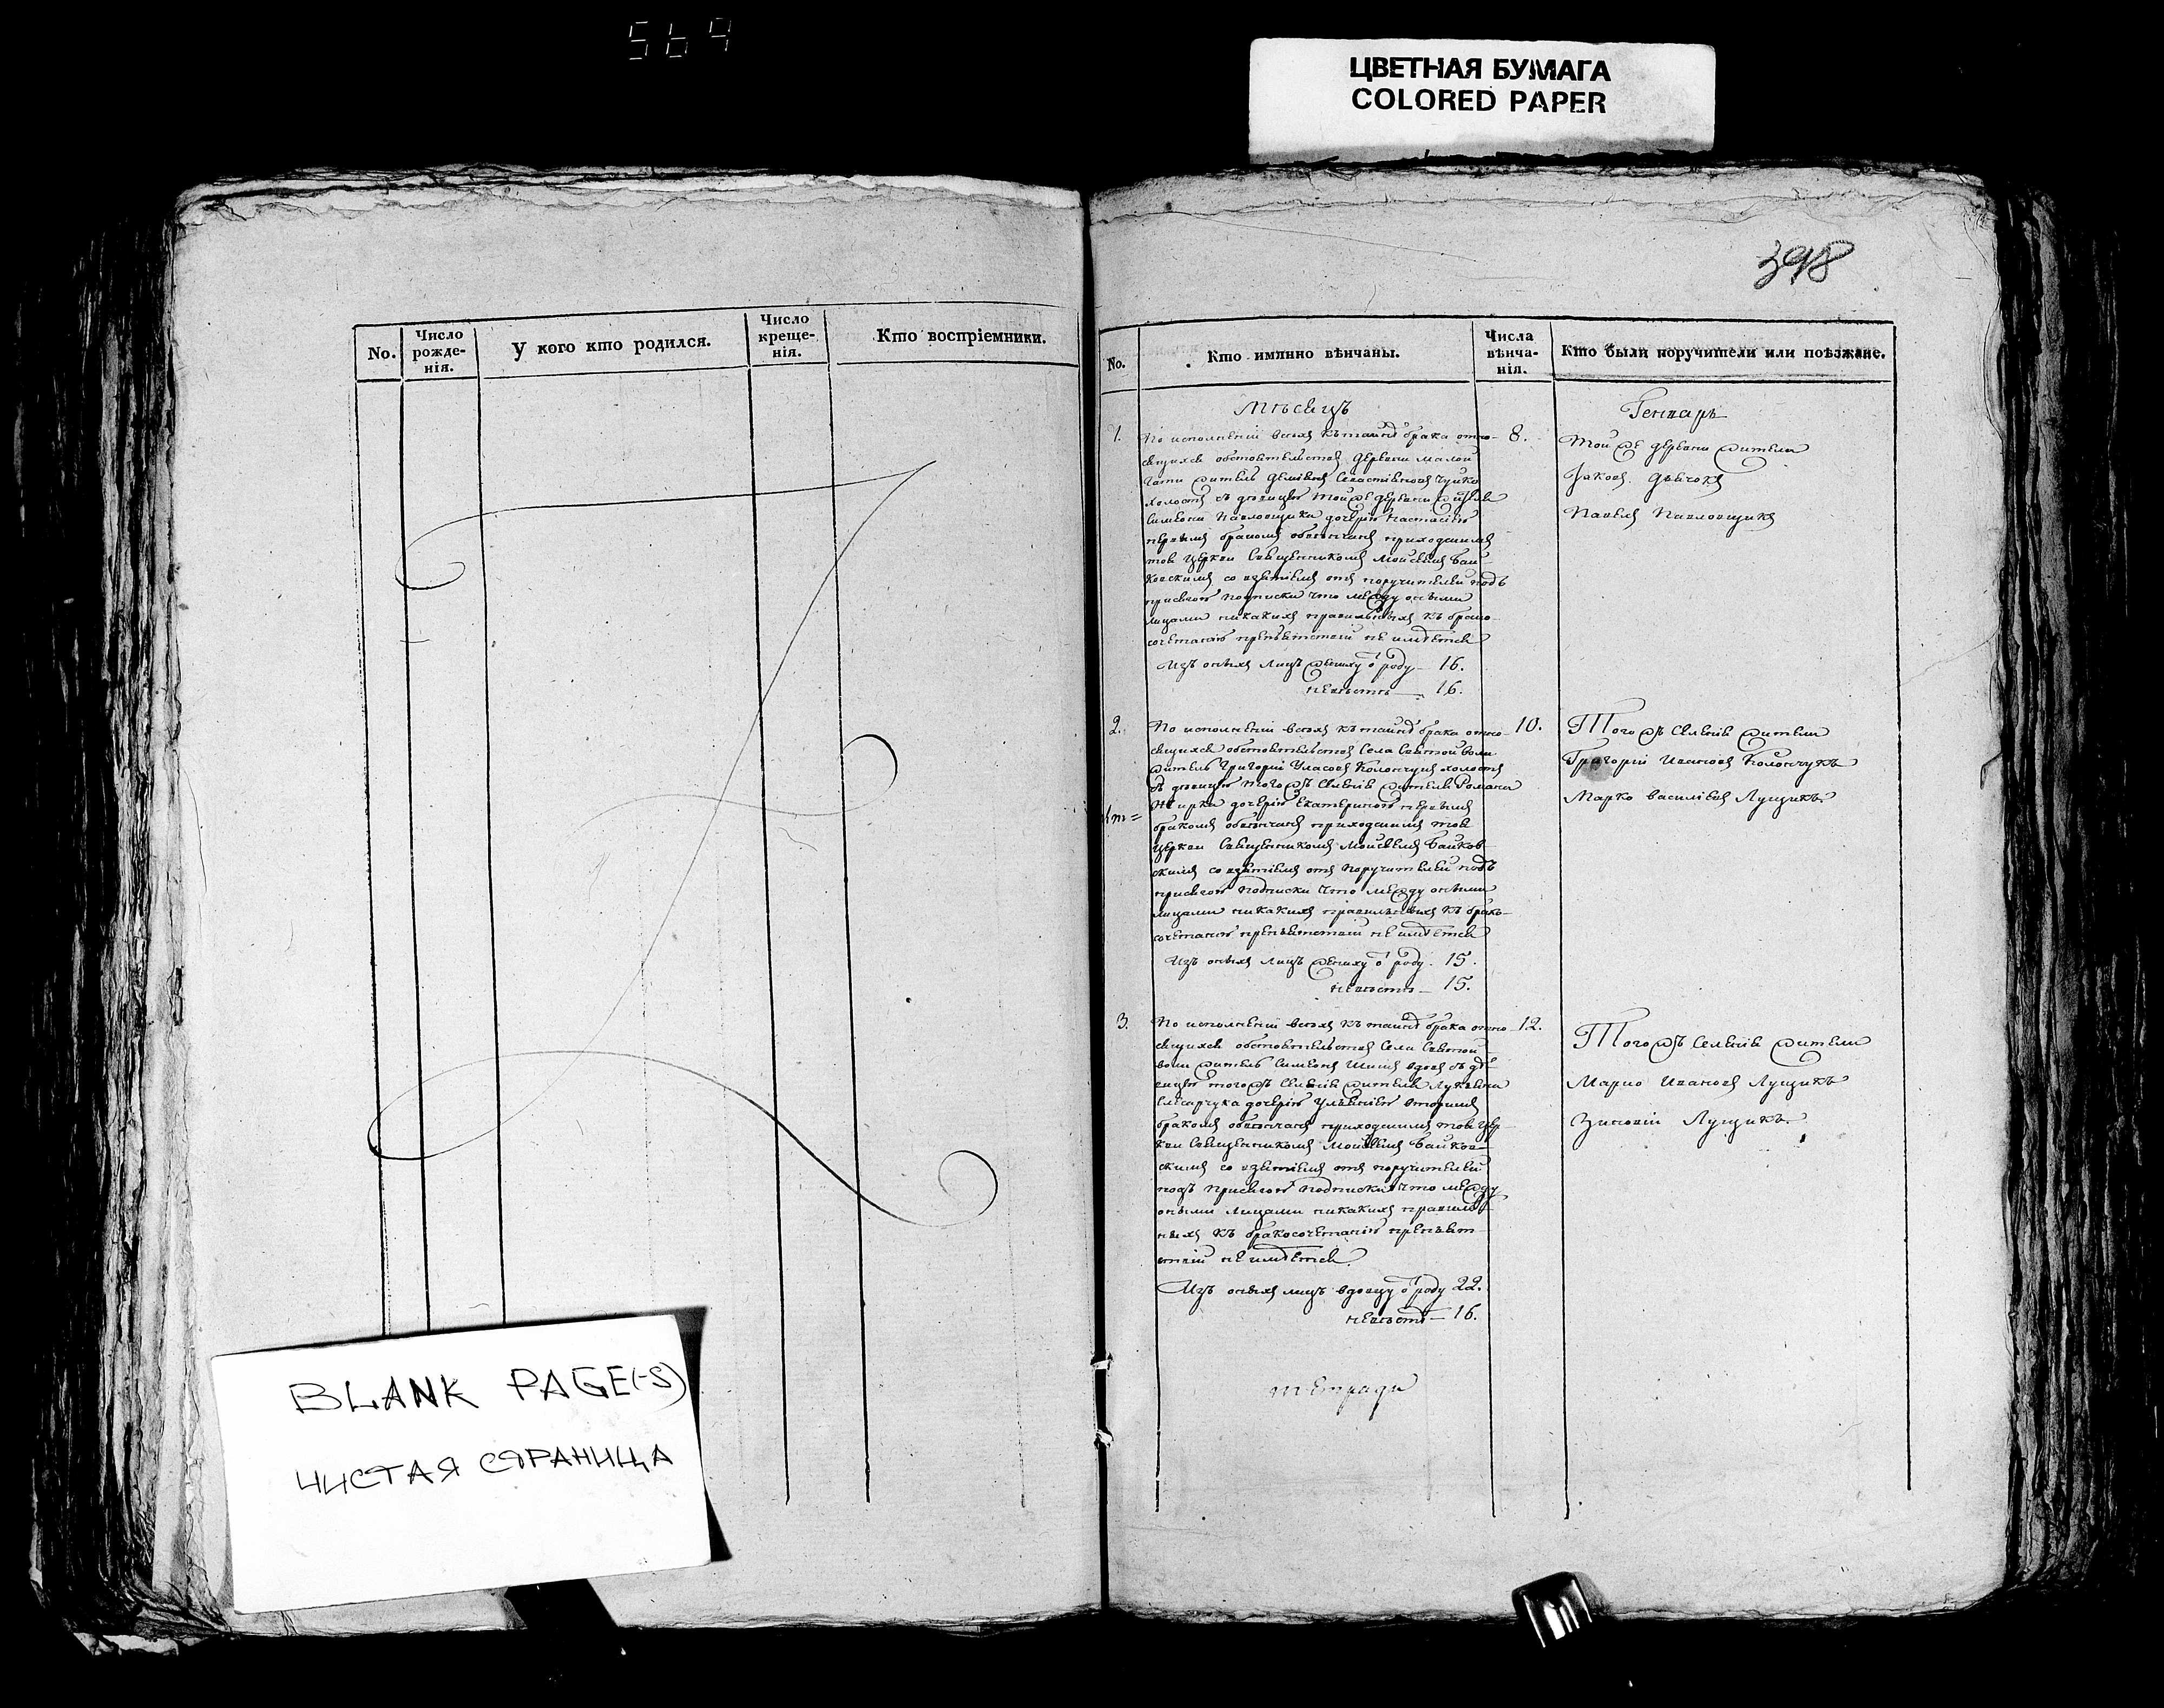 564
ЦВЕТНАЯ БУМАГА
COLORED PAPER
398
No.
Число рожде-нія.
У кого кто родился.
Число креще-нія.
Кто воспріемники.
BLANK PAGE(-S)
ЧИСТАЯ СТРАНИЦА
No.
Кто имянно вѣнчаны.
Числа вѣнча-нія.
Кто были поручители или поѣзжане.
Мѣсяцъ
Генварь
1.
По исполненіи всѣхъ къ тайнѣ брака отно-
сящихся обстоятельствъ деревни Малой
житель Севастіяновъ
холостъ съ дѣвицею той же деревни жителя
Симеона Павловщика дочерію Настасіею
первымъ бракомъ обвѣнчанъ приходскимъ
той Церкви Священникомъ Мойсеемъ Бай-
ковскимъ со взятіемъ отъ поручителей подъ
присягою подписки что между оными
лицами никакихъ правильныхъ къ брако-
сочетанію препятствій не имѣется
Изъ оныхъ лицъ жениху о роду 16.
невѣстѣ 16.
8.
Той же деревни жители
Іаковъ
Павелъ Павловщикъ
2.
По исполненіи всѣхъ къ тайнѣ брака отно-
сящихся обстоятельствъ Села Святой воли
житель Григорій Уласовъ холостъ
съ дѣвицею тогожъ Селенія жителя Романа
дочерію Екатериною первымъ
бракомъ обвѣнчанъ приходскимъ той
Церкви Священникомъ Мойсеемъ Байков-
скимъ со взятіемъ отъ поручителей подъ
присягою подписки что между оными
лицами никакихъ правильныхъ къ брако-
сочетанію препятствій не имѣется
Изъ оныхъ лицъ жениху о роду 15.
невѣстѣ 15.
10.
Тогожъ Селенія жители
Григорій Ивановъ Колончукъ
Марко Василіевъ Лущикъ
3.
По исполненіи всѣхъ къ тайнѣ брака отно-
сящихся обстоятельствъ Села Святой
воли житель Симеонъ вдовъ съ дѣ-
вицею тогожъ Селенія жителя Лукіяна
дочерію Ульяніею вторымъ
бракомъ обвѣнчанъ приходскимъ той Цер-
кви Священникомъ Мойсеемъ Байков-
скимъ со взятіемъ отъ поручителей
подъ присягою подписки что между
оными лицами никакихъ правиль-
ныхъ къ бракосочетанію препят-
ствій не имѣется.
Изъ оныхъ лицъ вдовцу о роду 22.
невѣстѣ 16.
12.
Тогожъ Селенія жители
Марко Ивановъ Лущикъ
Зиновій Лущикъ.
тетради